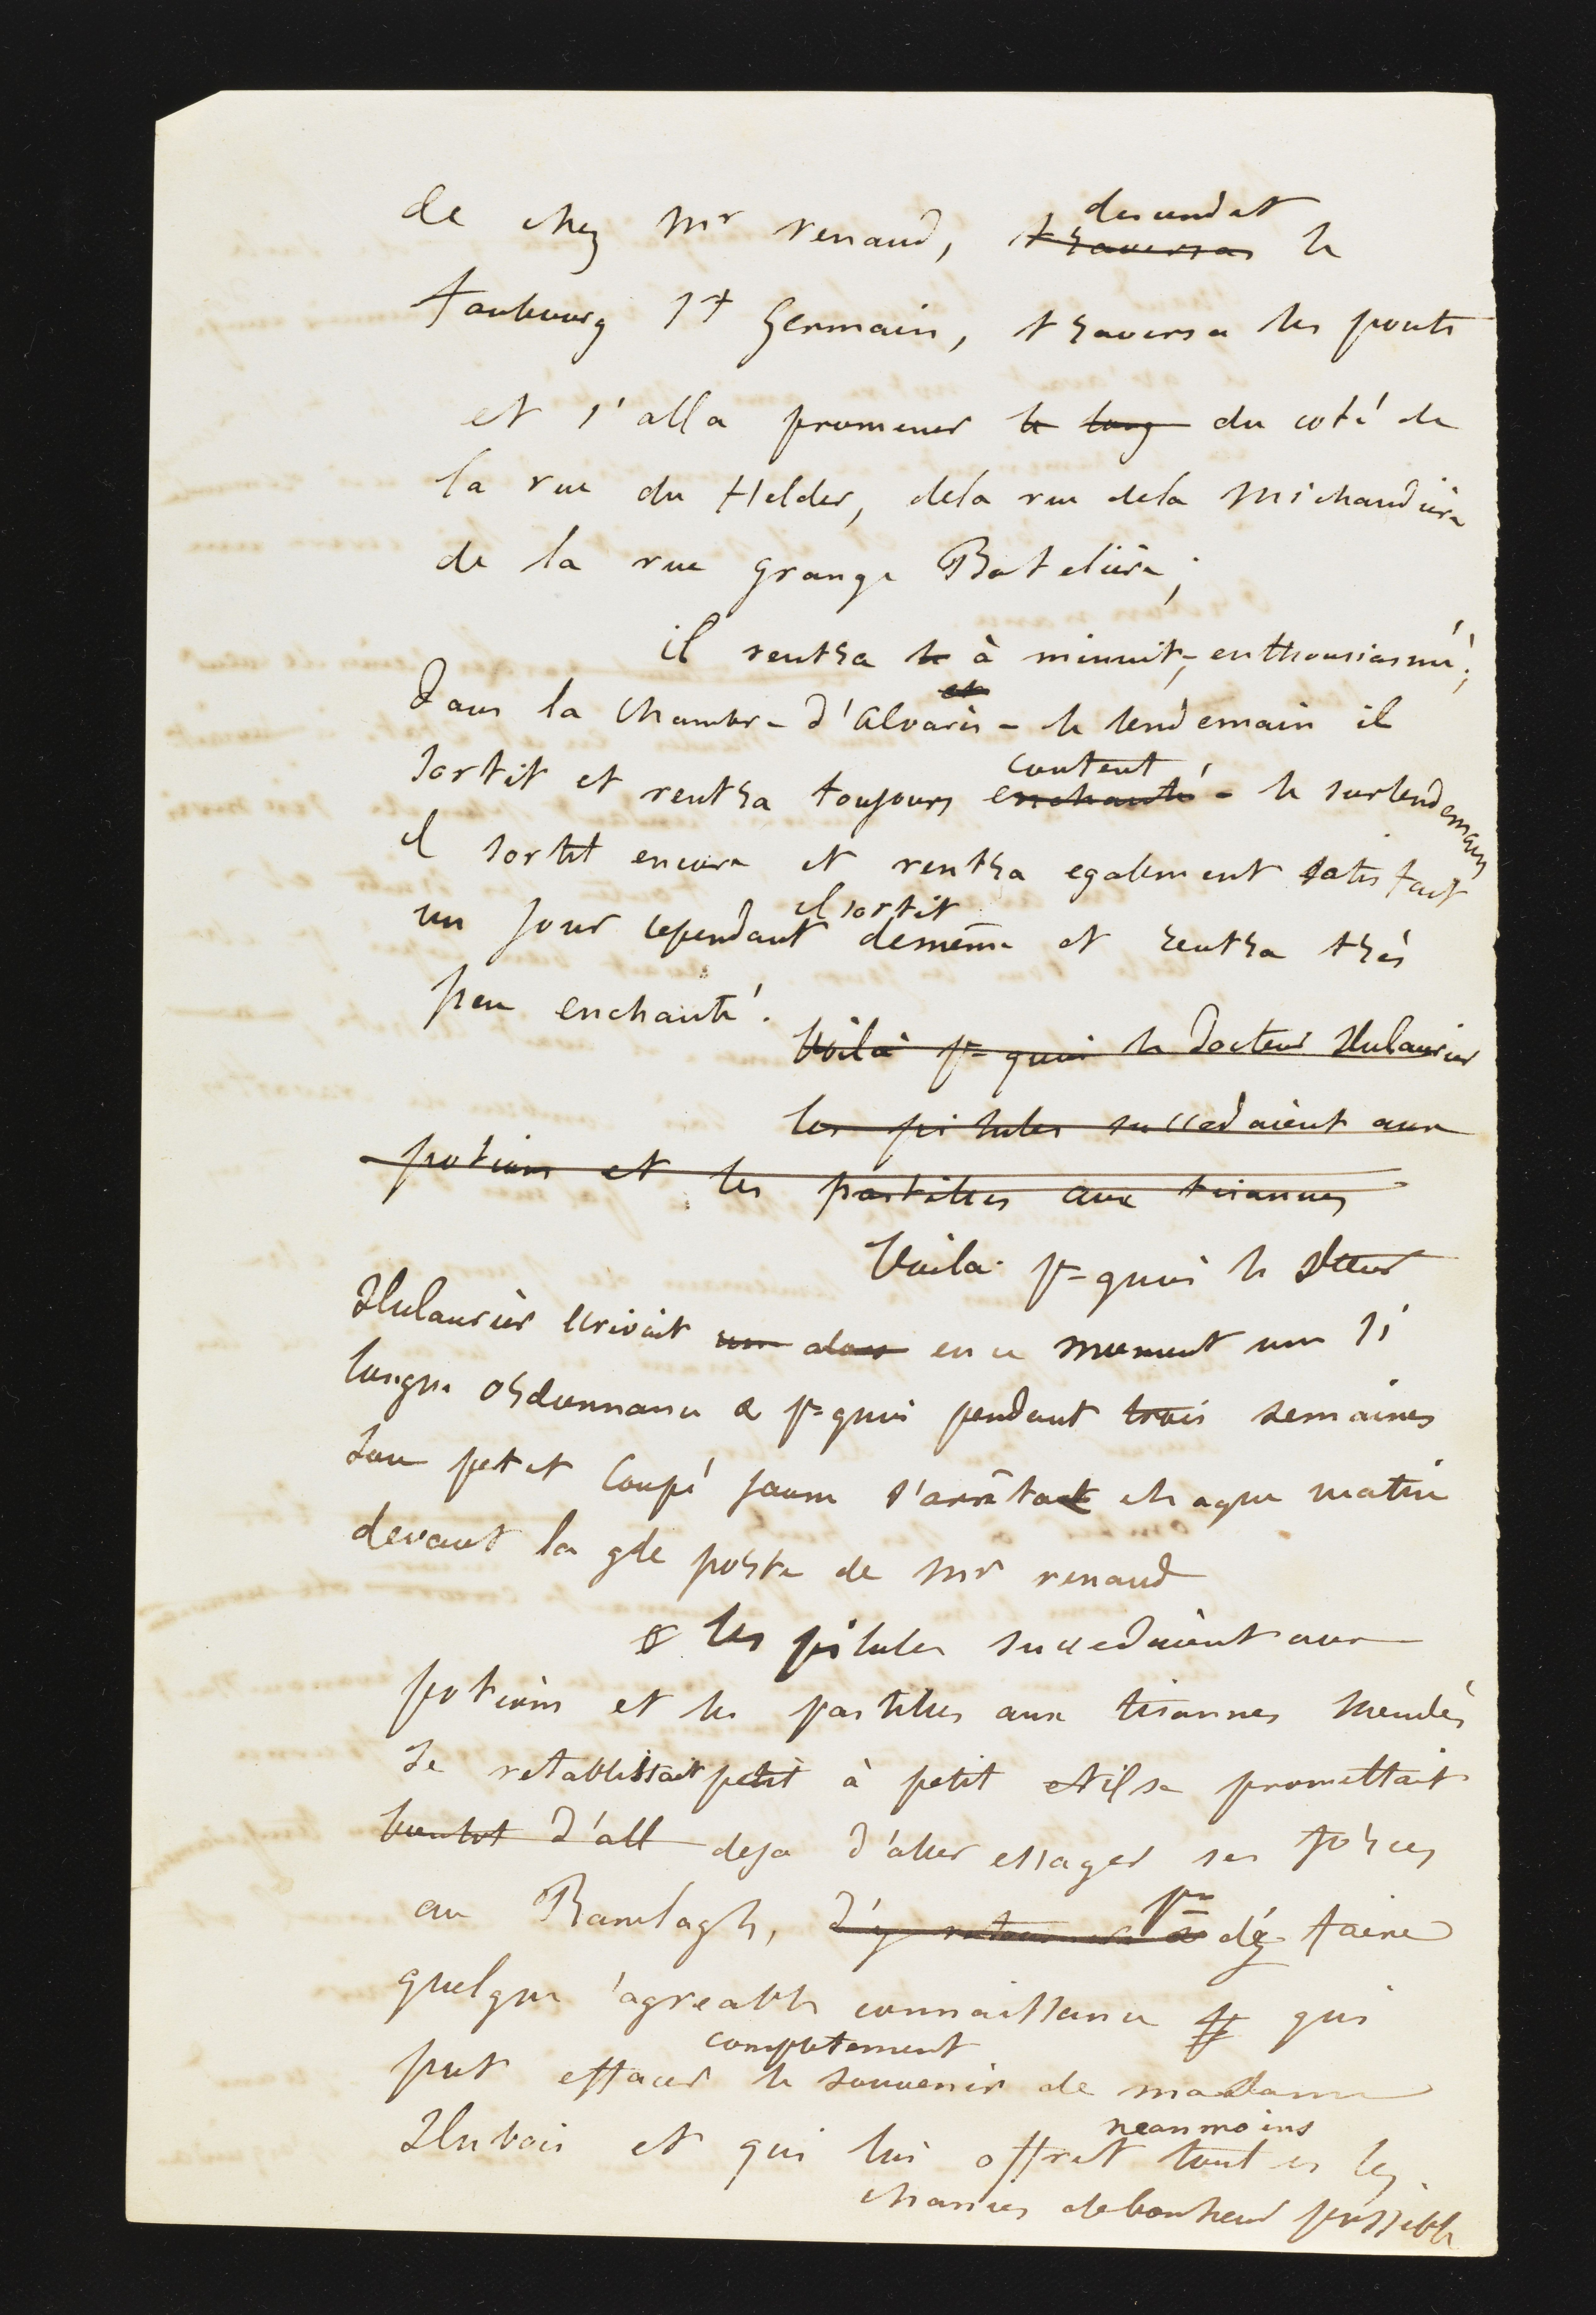 de chez Mr renaud, descendit traversa le
faubourg St Germain, traversa les ponts
et s'alla promener le long du coté de
la rue du Helder, dela rue dela Michaudière
de la rue grange Batelière;
il rentra le à minuit, enthousiasmé;
dans la chambre d'Alvarès - et le lendemain il
sortit et rentra toujours content enchanté - le surlendemain
il sortit encore et rentra egalement satisfait
un jour cependant il sortit demême et rentra très
peu enchanté.
Voilà pr quoi le docteur Dulaurier
les pilules succedaient aux
potions et les pastilles aux tisannes
Voila pr quoi le Dteur
Dulaurier ecrivait une alors en ce moment une si
longue ordonnance & pr quoi pendant trois semaines
son petit Coupé jaune s'arrêta chaque matin
devant la gde porte de Mr renaud
& les pilules succedaient aux
potions et les pastilles aux tisannes Mendès
se retablissait petit à petit et il se promettait
bientot d'all deja d'aller essayer ses forces
au Ranelagh, d'y retourner pr à d'y faire
quelque agreable connaissance qui
put effacer completement le souvenir de madame
Dubois et qui lui offrit neanmoins toutes les
chances debonheur possible